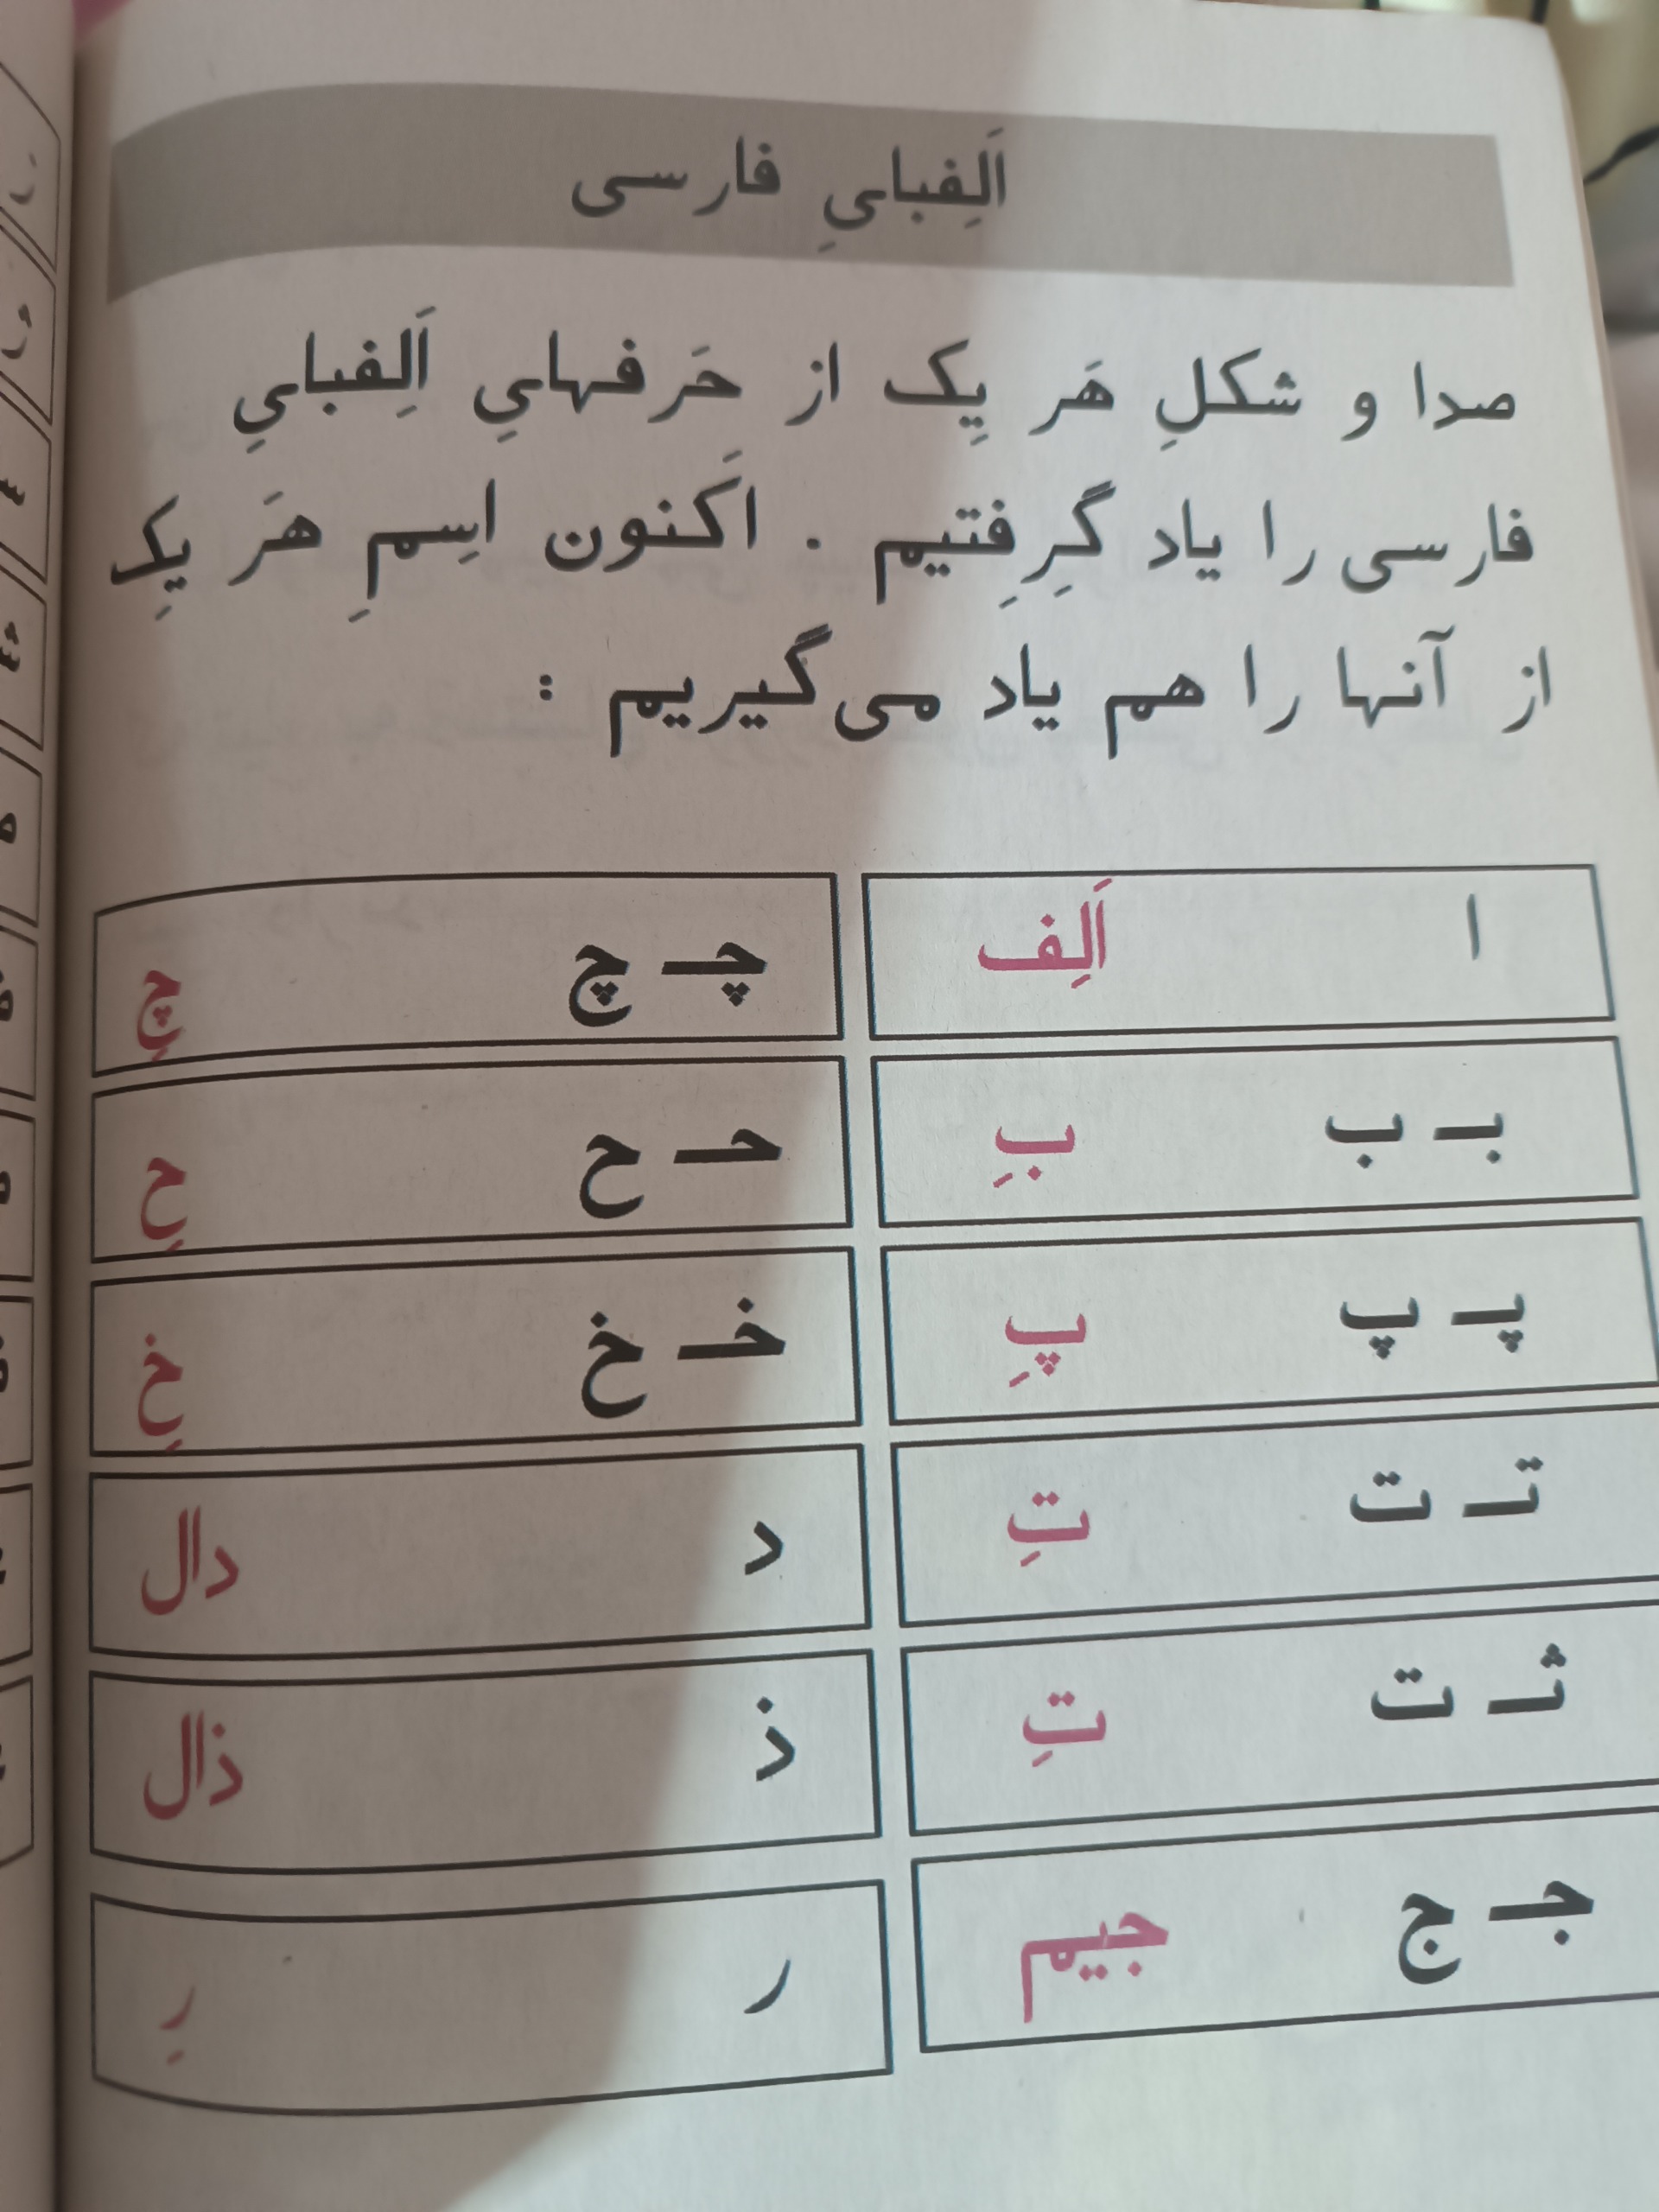 اَلِفبایِ فارسی
صدا و شکلِ هَر یِک از حَرفهایِ اَلِفبایِ
فارسی را یاد گرِفِتیم . اَکنون اسِمِ هَر یِک
از آنها را هم یاد می‌گیریم :
ا اَلِف
بـ ب بِ
پـ پ پِ
تـ ت تِ
ثـ ت تِ
جـ ج جیم
چـ چ چِ
حـ ح حِ
خـ خ خِ
د دال
ذ ذال
ر رِ